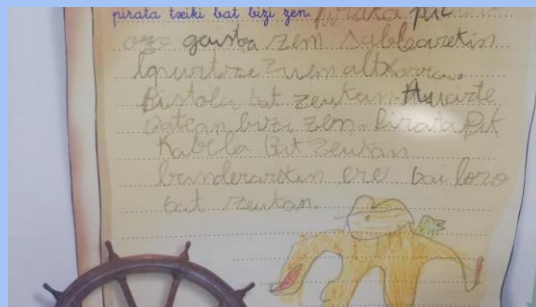 pirata txiki bat bizi zen. pirata pit
oso gaistoa zen sablearekin
zuen altxorra.
Pistola bat zeukan. Huarte
batean bizi zen. Pirata Pit
Kabela bat zeukan
banderarekin ere bai loro
bat zeukan.